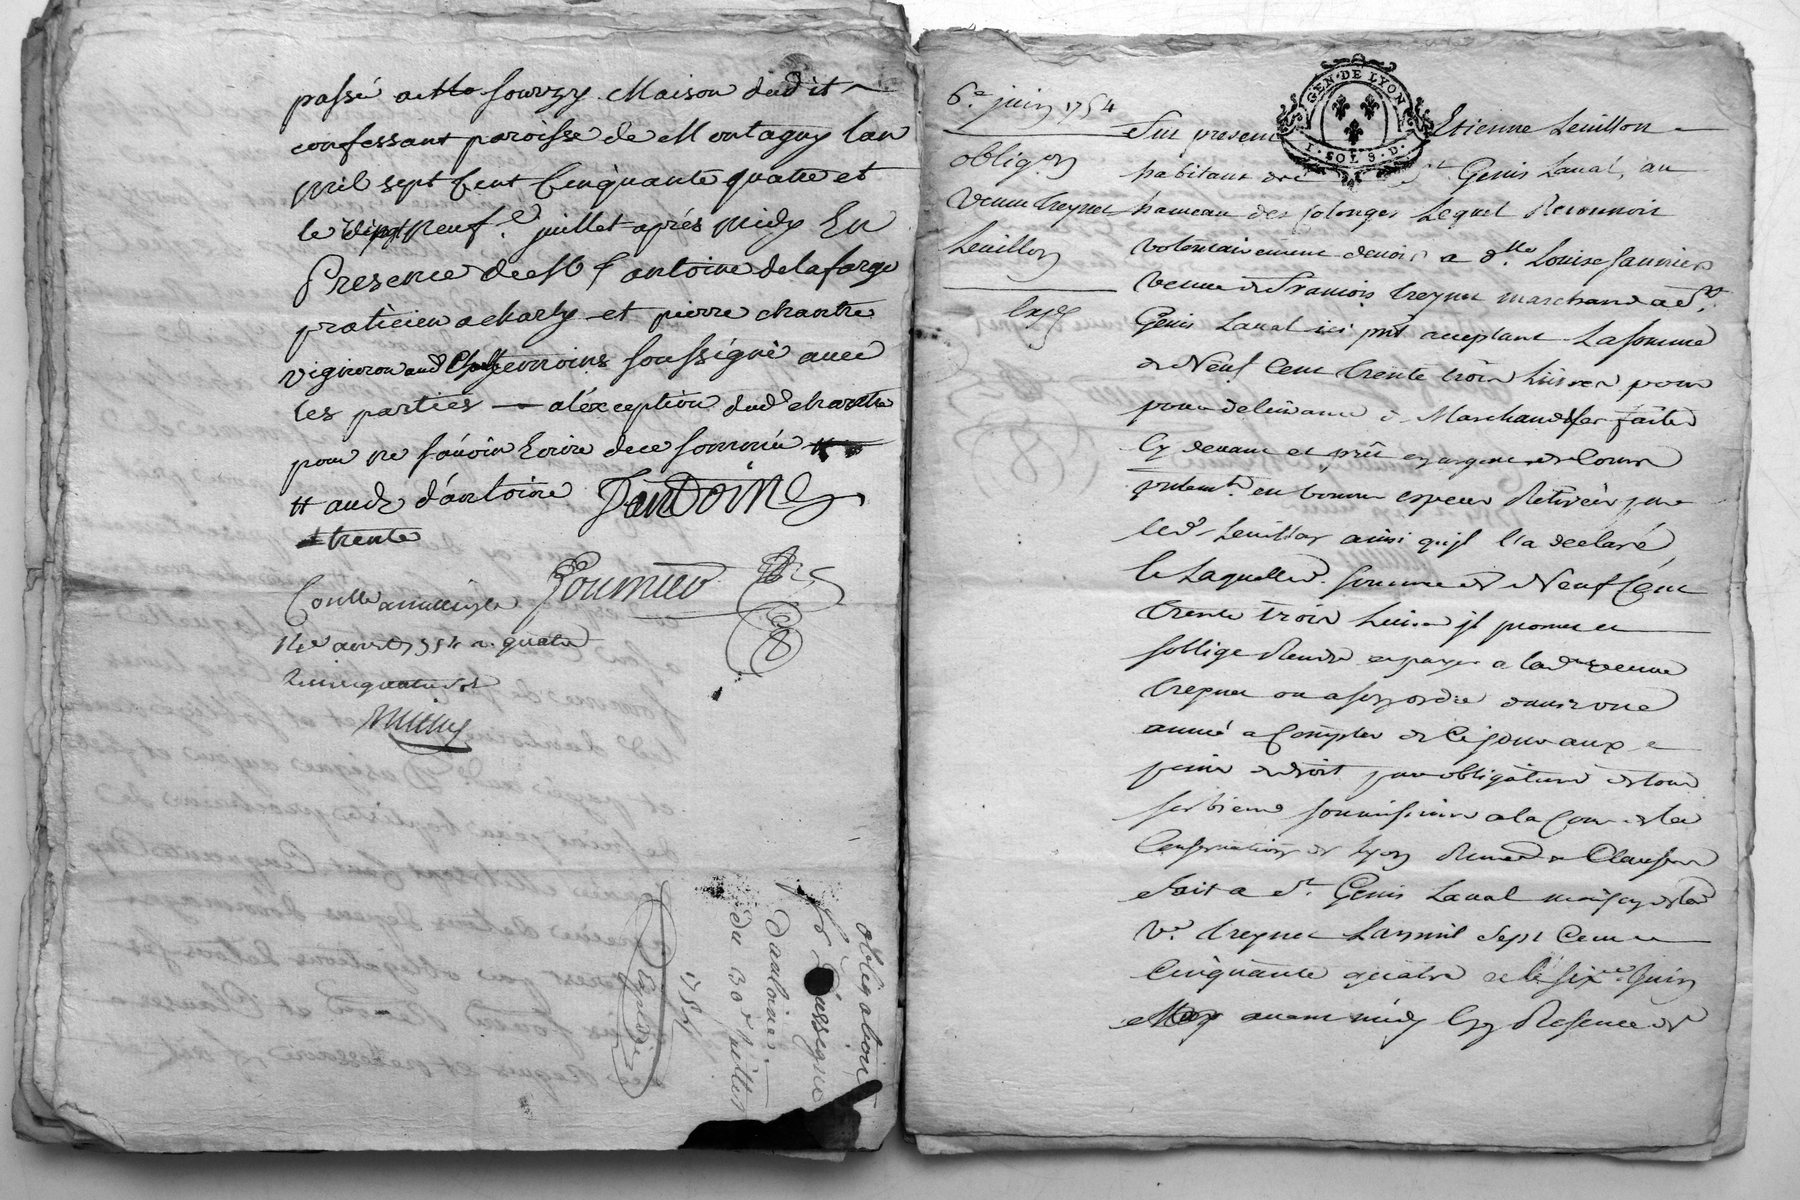 passé a Sourzy Maison dudit
confessant paroisse de Montagny lan
mil sept Cent Cinquante quatre et
le vingt neuf.e juillet après midy En
Presence de Sr antoine delaforge
praticien a charly et pierre chantre
vigneron aud temoins soussigné avec
les parties — a l'éxception dud chantre
pour ne sávoir Ecrire de ce sommé
# aud d'antoine Dandoine
trente
Fournier
quatre
obligation
dantoine
du 30 Juillet
1754
6.e juin 1754
oblig.on
Veuve treynet
Leuillon
exp
GEN·DE LYON
I·SOLS·D·
Fut present Etienne Leuillon
habitant de St Genis Laual, au
hameau des solonges Lequel Reconnoit
volontairement devoir a dlle Louise Saunier
veuve de Francois treynet marchand a St
Genis Laual ici pnt acceptant La somme
de Neuf Cent trente trois Livres pour
pour delivrance de Marchandises faites
Cy devant et prêt en argent de Cours
en bonnes especes Retirées par
led. Leuillon ainsi qu'jl l'a declaré
Laquelle somme de Neuf Cent
trente trois Livres jl promet et
soblige Rendre et payer a lad. veuve
treynet ou a son ordre dans une
année a Compter de Ce jour aux
peine de droit par obligation de tous
ses biens soumissions a la Cour de la
Conservation de Lyon Renon.on Clauses
Fait a St Genis Laual maison de la
Ve. treynet Lan mil Sept Cent
Cinquante quatre et le sixe. Juin
avant midy En Presence de